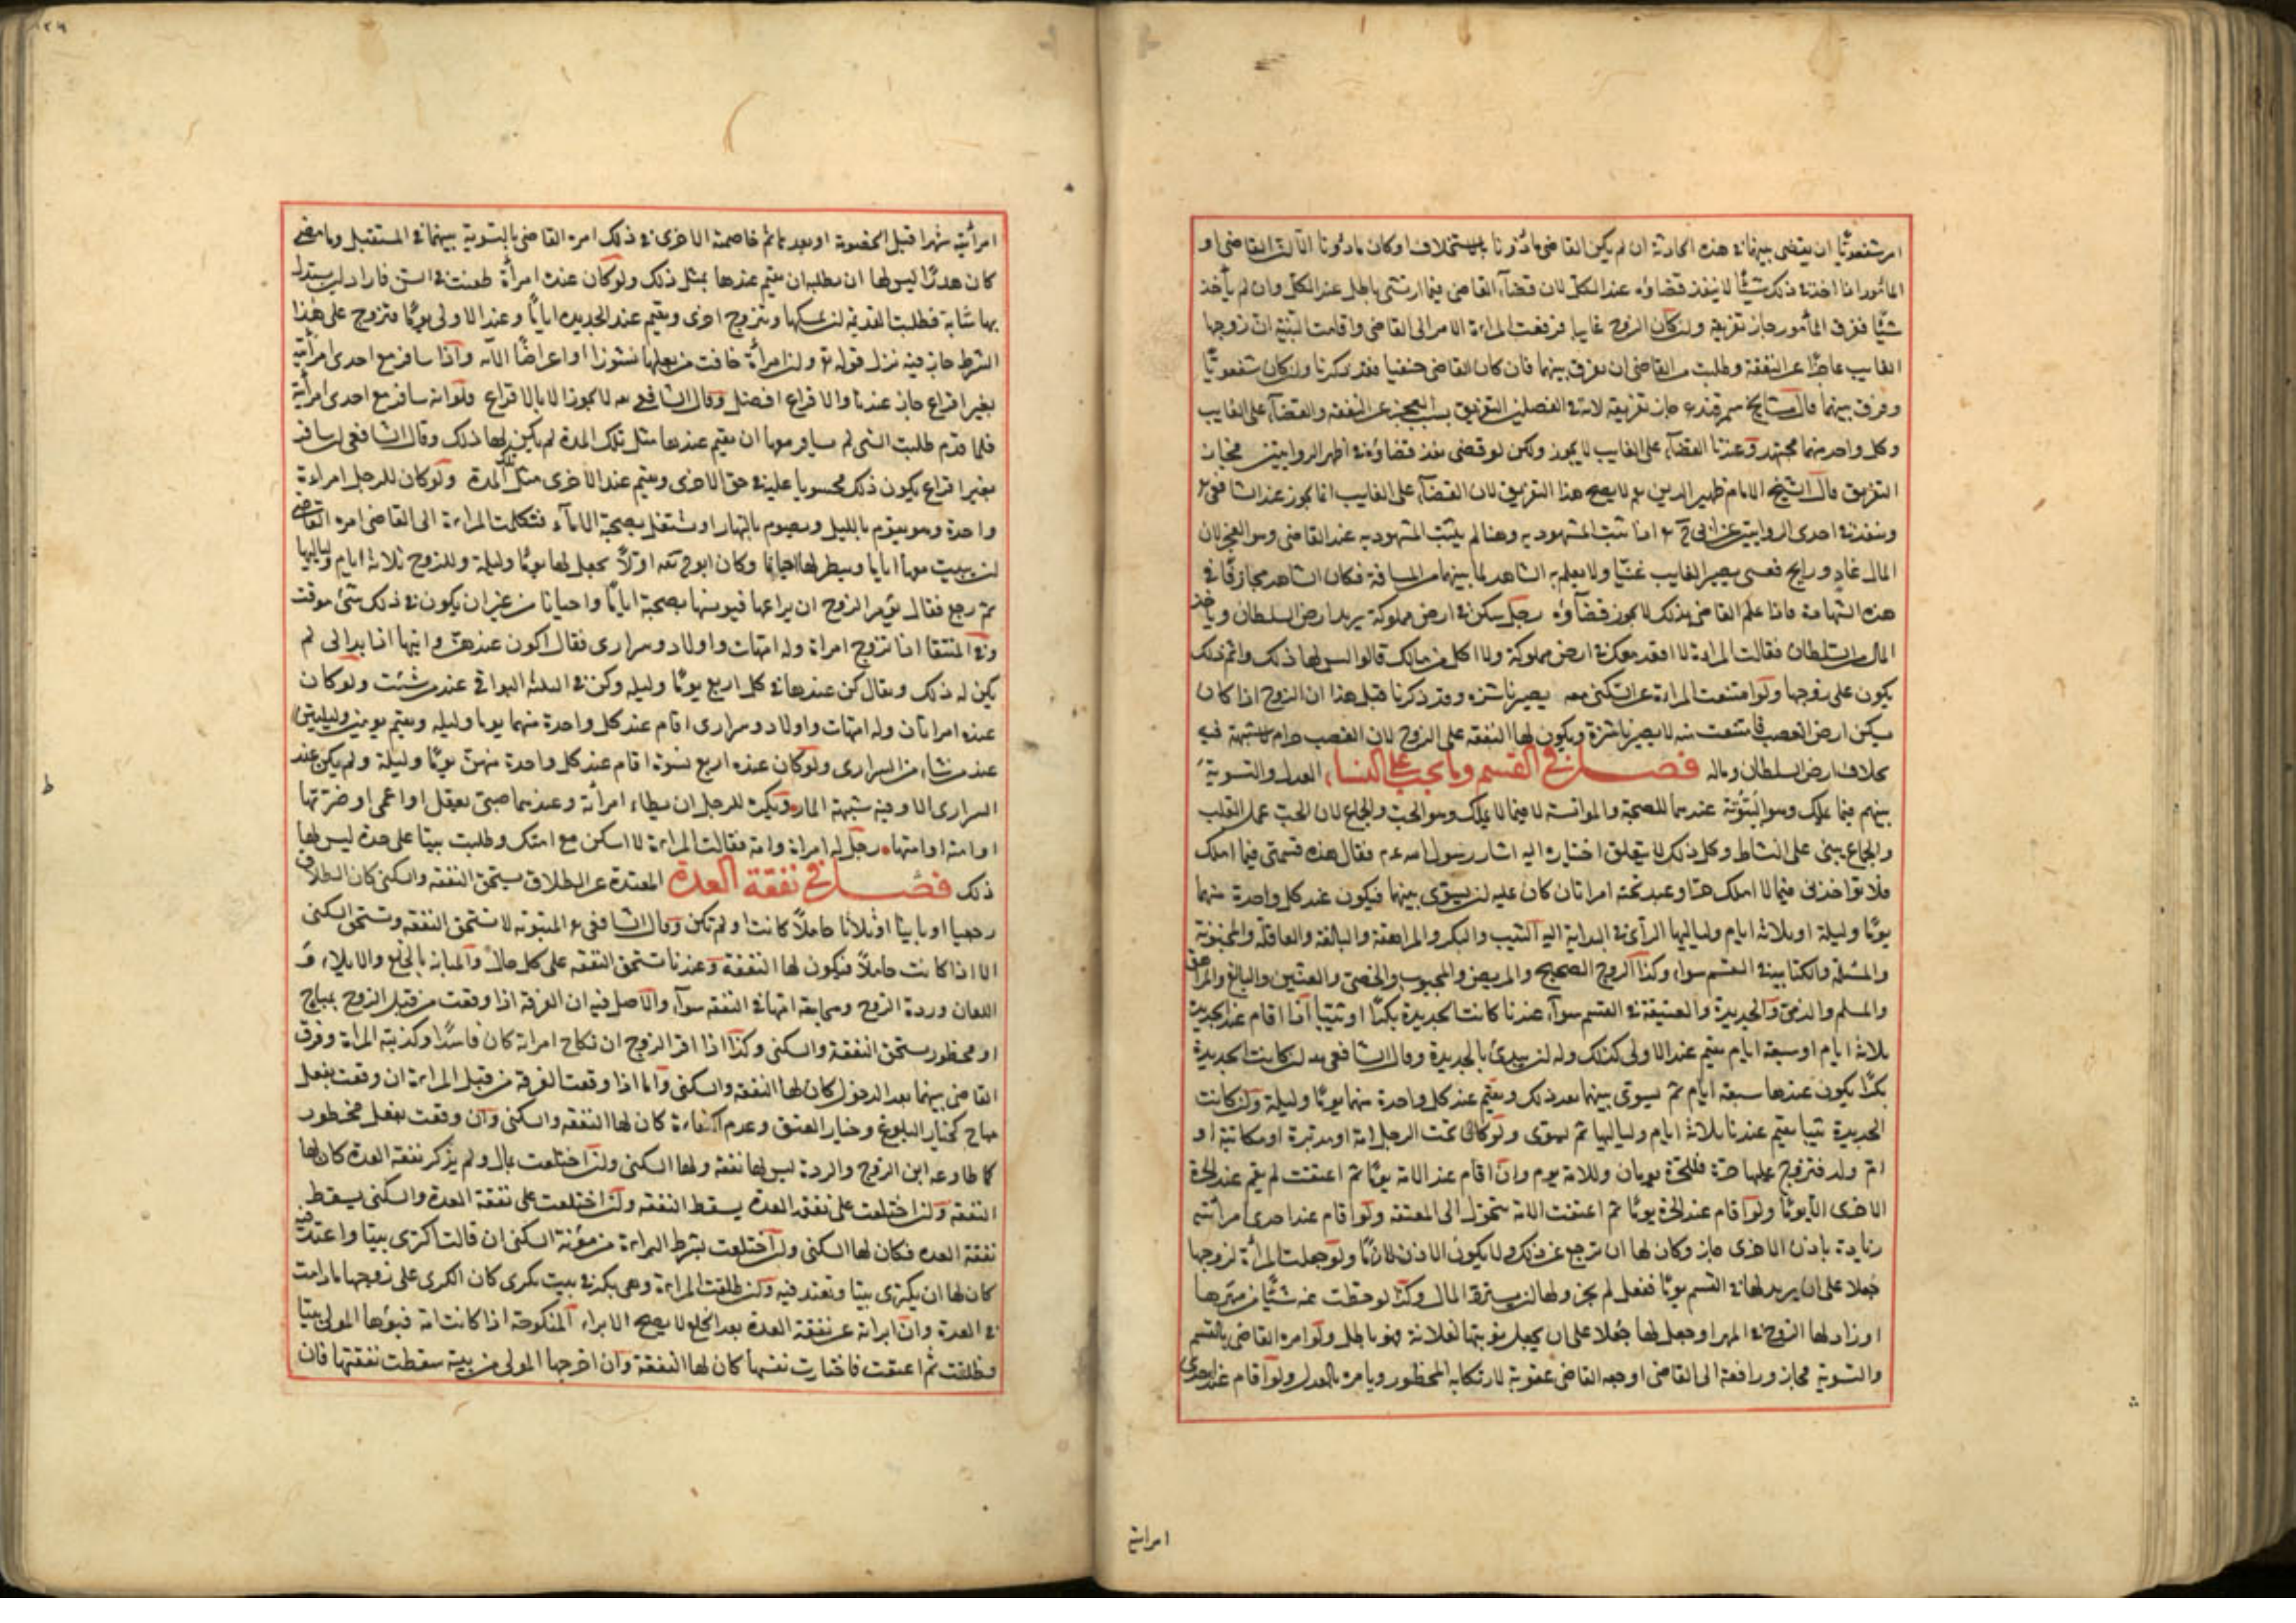 امر شفعويا ان يقضى بينهما فى هذه الحادثة ان لم يكن القاضى ماذونا بالاستخلاف او كان ماذونا الا ان القاضى او
المأمور اذا اخذ فى ذلك شيئا لا ينفذ قضاؤه عند الكل لان قضاء القاضى فيما ارتشى باطل عند الكل وان لم يأخذ
شيئا ففرق المأمور جاز تفريقه ولو كان الزوج غايبا فرفعت المراءة الامر الى القاضى واقامت البينة ان زوجها
الغايب عاجزا عن النفقة وطلبت من القاضى ان يفرق بينهما فان كان القاضى حنفيا فقد ذكرنا وان كان شفعويا
وفرق بينهما قال مشايخ سمرقند جاز تفريقه لانه فى الفصلين التفريق بسبب العجز عن النفقة والقضاء على الغايب
وكل واحد منهما مجتهد وعندنا القضاء على الغايب لا يجوز ولكن لو قضى نفذ قضاؤه فى اظهر الروايتين فجاز
التفريق قال الشيخ الامام ظهير الدين لا يصح هذا التفريق لان القضاء على الغايب انما يجوز عند الشافعى
وينفذ فى احدى الروايتين عن ابى ح اذا ثبت المشهود به وهنا لم يثبت المشهود به عند القاضى وهو العجز لان
المال غاد ورايح فعسى يصير الغايب غنيا ولا يعلم به الشاهد لما بينهما من المسافة فكان الشاهد مجازفا فى
هذه الشهادة فاذا علم القاضى بذلك لا يجوز قضاؤه رجل يسكن فى ارض مملوكة يريد ارض السلطان وياخذ
المال من السلطان فقالت المراءة لا اقعد معك فى ارض مملوكة ولا اكل من مالك قالوا ليس لها ذلك واثم ذلك
يكون على زوجها ولو امتنعت المراءة عن السكنى معه يصير ناشزه وقد ذكرنا قبل هذا ان الزوج اذا كان
يسكن ارض الغصب فامتنعت منه لا يصير ناشزة ويكون لها النفقة على الزوج لان الغصب حرام لا شبهة فيه
بخلاف ارض السلطان وماله فصل فى القسم وما يجب على النساء العدل والتسوية
بينهم فيما يملك وهو البيتوتة عندهما للصحبة والموانسة لا فيما لا يملك وهو الحب والجماع لان الحب عمل القلب
والجماع يبنى على النشاط وكل ذلك لا يتعلق اختياره اليه اشار رسول الله عم فقال هذه قسمتى فيما املك
فلا تواخذنى فيما لا املك عبد تحته امراتان كان عليه ان يسوى بينهما فيكون عند كل واحدة منهما
يوما وليلة او ثلاثة ايام ولياليها الرأى فى البداية اليه الثيب والبكر والمراهقة والبالغة والعاقلة والمجنونة
والمسلمة والكتابية فى القسم سواء وكذا الزوج الصحيح والمريض والمجبوب والخصى والعنين والبالغ والمراهق
والمسلم والذمى والجديدة والعتيقة فى القسم سواء عندنا كانت الجديدة بكرا او ثيبا اذا اقام عند الجديدة
ثلاثة ايام او سبعة ايام يقيم عند الاولى كذلك وله ان يبدئ بالجديدة وقال الشافعى ان كانت الجديدة
بكرا يكون عندها سبعة ايام ثم يسوى بينهما بعد ذلك ويقيم عند كل واحدة منهما يوما وليلة وان كانت
الجديدة ثيبا يقيم عندنا ثلاثة ايام ولياليها ثم يسوى ولو كان تحت الرجل امة او مدبرة او مكاتبة او
ام ولد فتزوج عليها حرة فللحرة يومان وللامة يوم وان اقام عند الامة يوما ثم اعتقت لم يقم عند الحرة
الاخرى الا يوما ولو اقام عند الحرة يوما ثم اعتقت الامة يتحول الى المعتقة ولو اقام عند احدى امرأتيه
زيادة باذن الاخرى جاز وكان لها ان ترجع عن ذلك ولا يكون الاذن لازما ولو جعلت المرأة لزوجها
جعلا على ان يزيد لها فى القسم يوما ففعل لم يجز ولها ان يسترد المال وكذا لو حطت عنه شيئا من مهرها
او زاد لها الزوج فى المهر او جعل لها جعلا على ان يجعل نوبتها لفلانة فهو باطل ولو امره القاضى بالقسم
والتسوية فجاز ورافعة الى القاضى اوجعه القاضى عقوبة لارتكابه المحظور ويامره بالعدل ولو اقام عند احدى
امراتيه
امرأتيه شهرا قبل الخصومة او بعدها ثم خاصمته الاخرى فى ذلك امره القاضى بالتسوية بينهما فى المستقبل وما مضى
كان هدرا ليس لها ان يطلب ان يقيم عندها بمثل ذلك ولو كان عنده امرأة طعنت فى السن فاراد ان يستبدل
بها شابة فطلبت القديمة ان يمسكها ويتزوج اخرى ويقيم عند الجديده اياما وعند الاولى يوما فتزوج على هذا
الشرط جاز فيه نزل قوله تع وان امرأة خافت من بعلها نشوزا او اعراضا الآيه واذا سافر مع احدى امرأتيه
بغير اقراع جاز عندنا والاقراع افضل وقال الشافعى لا يجوز الا بالاقراع فلو انه سافر مع احدى امرأتيه
فلما قدم طلبت التى لم يسافر معها ان يقيم عندها مثل تلك المدة لم يكن لها ذلك وقال الشافعى ان سافر
بغير اقراع يكون ذلك محسوبا عليه فى حق الاخرى ويقيم عند الاخرى مثل تلك المدة ولو كان للرجل امراءة
واحدة وهو يقوم بالليل ويصوم بالنهار او يشتغل بصحبة الاماء فتكلمت المراءة الى القاضى امره القاضى
ان يبيت معها اياما ويفطر لها احيانا وكان ابو ح يقه اولا يجعل لها يوما وليلة وللزوج ثلاثة ايام ولياليها
ثم رجع فقال يؤمر الزوج ان يراعيها فيونسها بصحبة اياما واحيانا من غير ان يكون فى ذلك شئ موقت
وفى المنتقا اذا تزوج امراة وله امهات واولاد وسرارى فقال اكون عندهن وايتها اذا بدا لى لم
يكن له ذلك ويقال كن عندها فى كل اربع يوما وليله وكن فى الثلثة البواقى عند من شئت ولو كان
عنده امراتان وله امهات واولاد وسرارى اقام عند كل واحدة منهما يوما وليله ويقيم يومين وليليتين
عند من شاء من السرارى ولو كان عنده اربع نسوة اقام عند كل واحدة منهن يوما وليلة ولم يكن عند
السرارى الا وقفه شبهة المار ويكره للرجل ان يطاء امرأته وعندهما صبى يعقل او اعمى او ضرتها
او امته او امتها رجل له امراة وامة فقالت المراءة لا اسكن مع امتك وطلبت بيتا على حدة ليس لها
ذلك فصل فى نفقة العدة المعتدة عن الطلاق يستحق النفقه والسكنى كان الطلاق
رجعيا او باينا او ثلاثا حاملا كانت او لم تكن وقال الشافعى المبتوته لا تستحق النفقه وتستحق السكنى
الا اذا كانت حاملا فيكون لها النفقة وعندنا تستحق النفقه على كل حال والمبانه بالخلع والايلاء و
اللعان وردة الزوج ومجامعة امها فى النفقه سواء والاصل فيه ان الفرقة اذا وقعت من قبل الزوج بمباح
او محظور يستحق النفقة والسكنى وكذا اذا اقر الزوج ان نكاح امراته كان فاسدا وكذبته المراة وفرق
القاضى بينهما بعد الدخول كان لها النفقه والسكنى واما اذا وقعت الفرقة من قبل المراءة ان وقعت بفعل
مباح كخيار البلوغ وخيار العتق وعدم الكفاءة كان لها النفقه والسكنى وان وقعت بفعل محظور
كمطاوعه ابن الزوج والردة ليس لها نفقة ولها السكنى وان اختلعت بمال ولم يذكر نفقة العدة كان لها
النفقة وان اختلعت على نفقة العدة يسقط النفقه وان اختلعت على نفقة العدة والسكنى يسقط
نفقة العده فكان لها السكنى وان اختلعت بشرط البراءة من مؤنة السكنى ان قالت اكترى بيتا واعتد فيه
كان لها ان يكترى بيتا وتعتد فيه وان طلقت المراءة وهى يكرى فى بيت بكرى كان الكرى على زوجها ما دامت
فى العدة وان ابراته عن نفقة العدة بعد الخلع لا يصح الابراء المنكوحة اذا كانت امة فبوؤها المولى بيتا
وطلقت ثم اعتقت فاختارت نفسها كان لها النفقة وان اخرجها المولى من بيته سقطت نفقتها فان